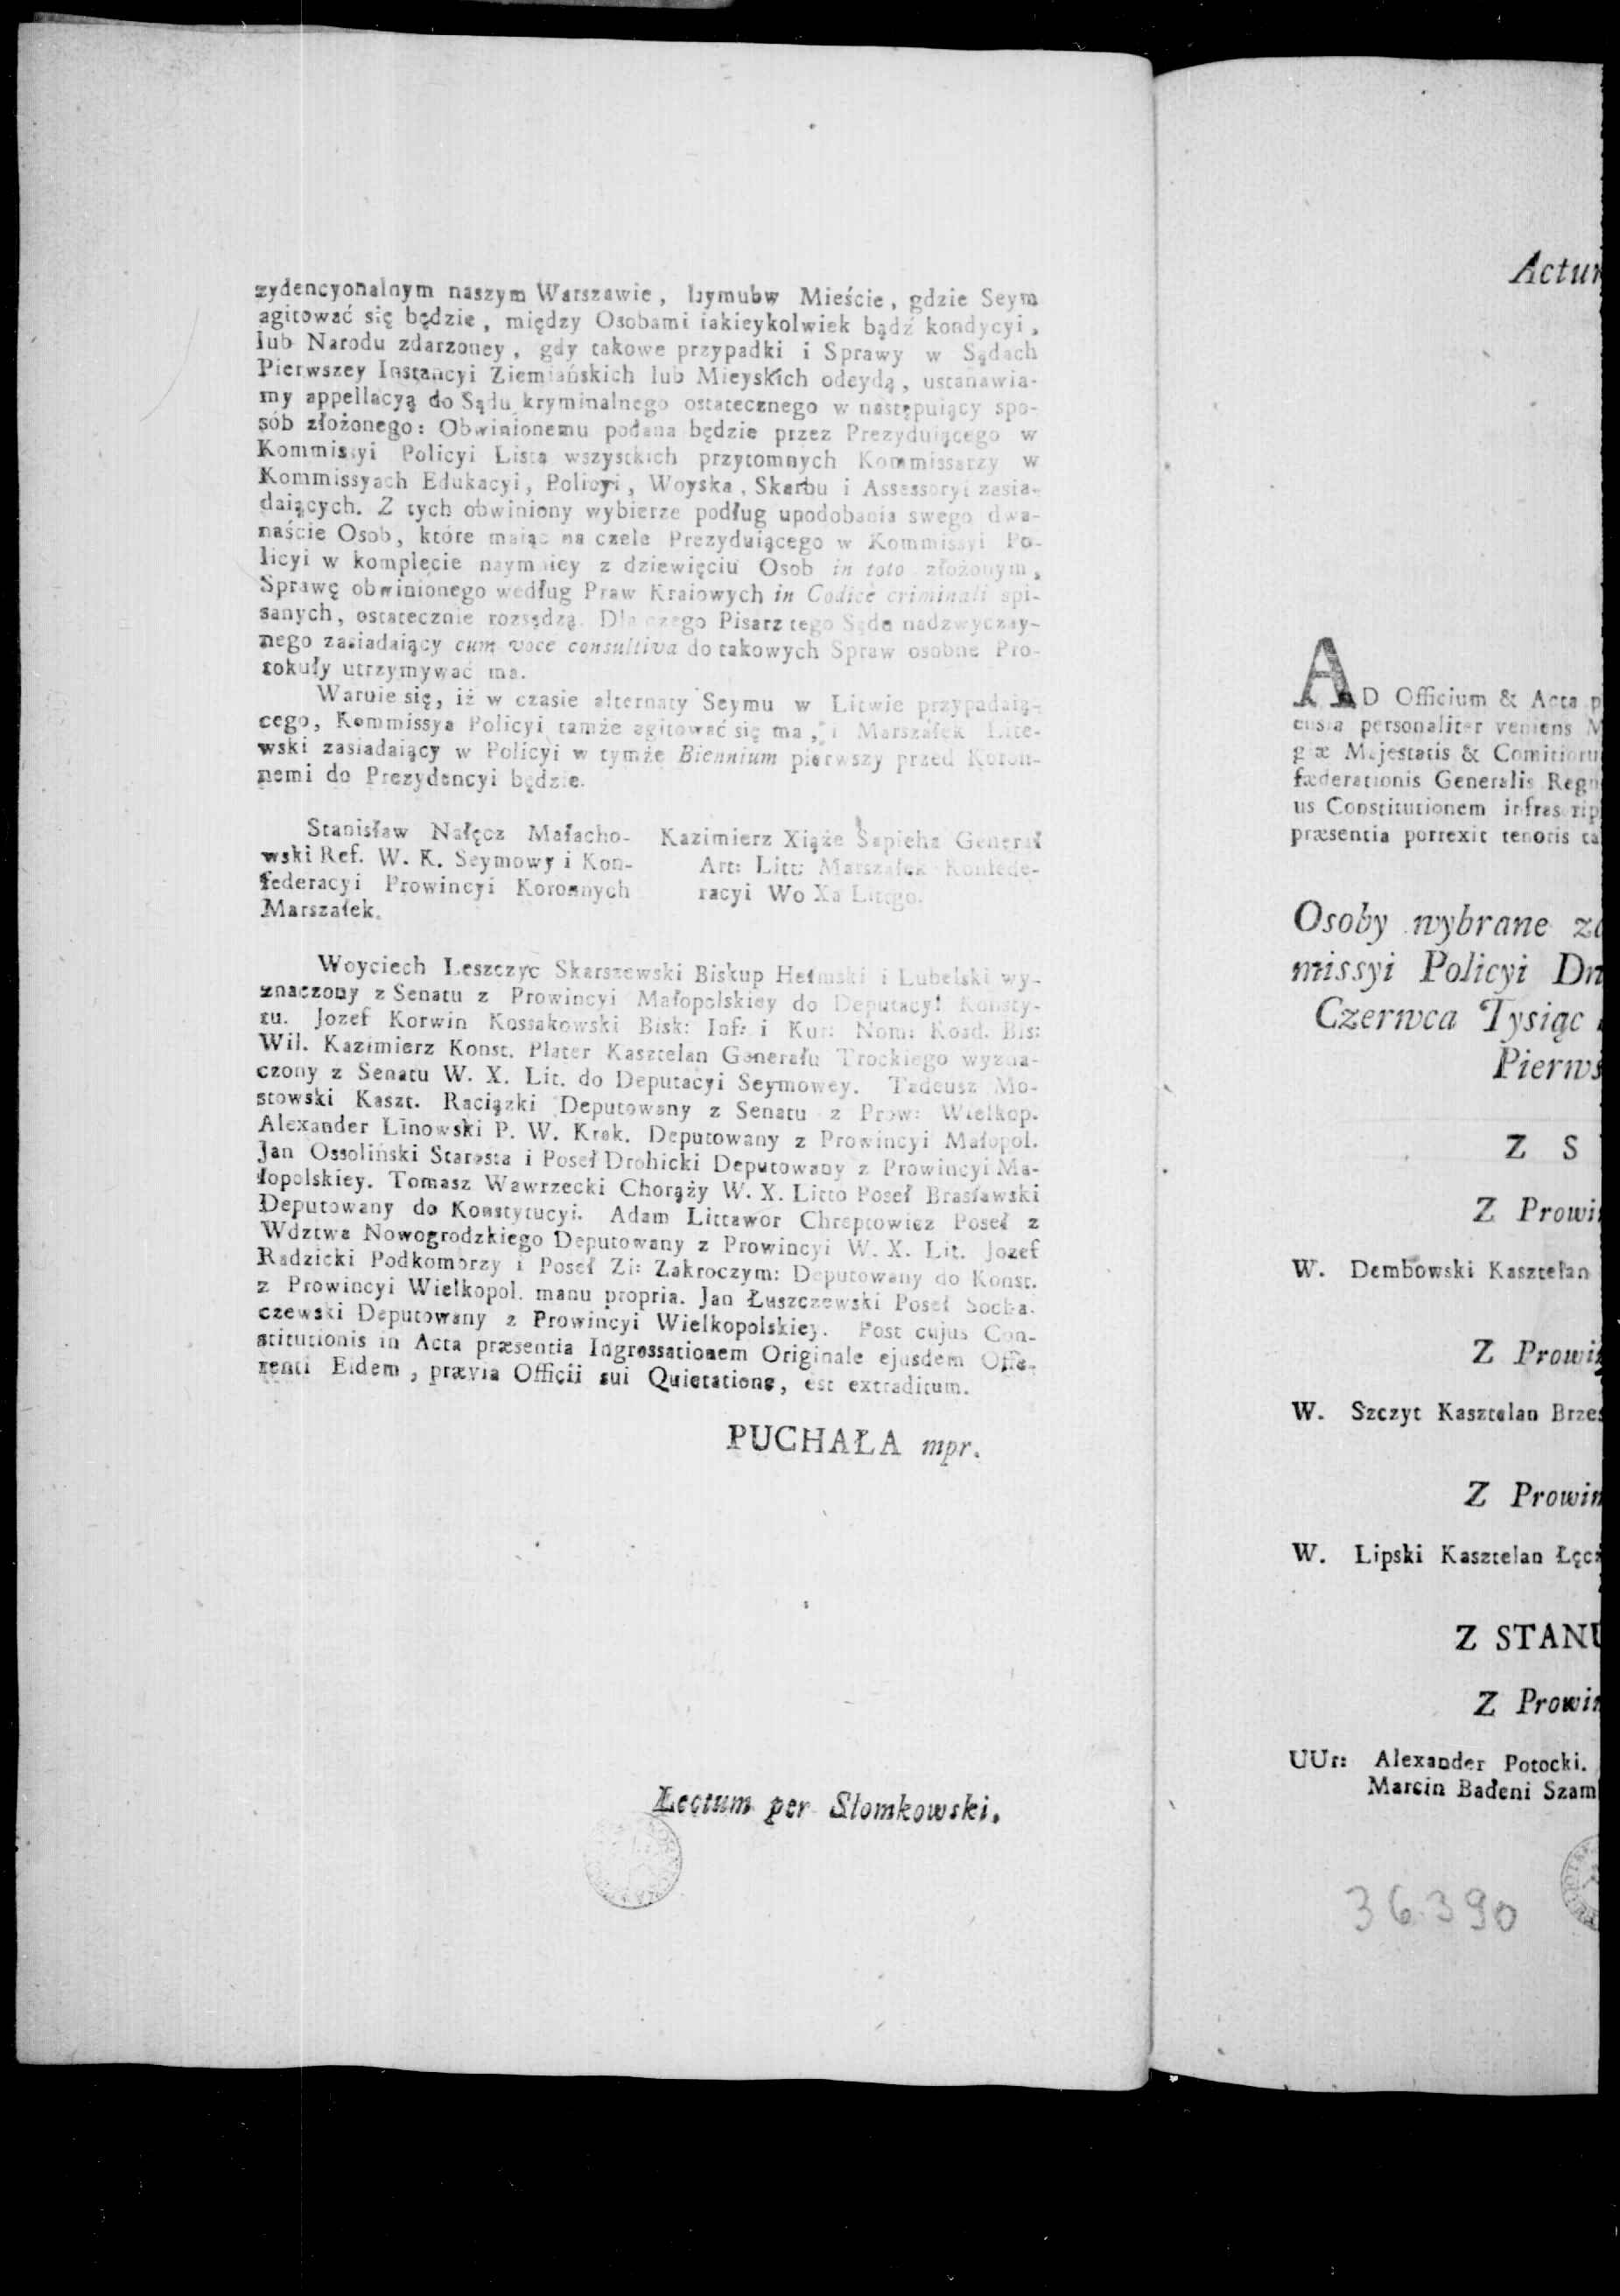 zydencyonalnym naszym Warszawie, bymubw Mieście, gdzie Seym
agitować się będzie, między Osobami iakieykolwiek bądź kondycyi,
lub Narodu zdarzoney, gdy takowe przypadki i Sprawy w Sądach
Pierwszey Instancyi Ziemiańskich lub Mieyskich odeydą, ustanawia-
my appellacyą do Sądu kryminalnego ostatecznego w następuiący spo-
sób złożonego: Obwinionemu podana będzie przez Prezyduiącego w
Kommissyi Policyi Lista wszystkich przytomnych Kommissarzy w
Kommissyach Edukacyi, Policyi, Woyska, Skarbu i Assessoryi zasia-
daiących. Z tych obwiniony wybierze podług upodobania swego dwa-
naście Osob, ktore maiąc na czele Prezyduiącego w Kommissyi Po-
licyi w komplecie naymniey z dziewięciu Osob in toto złożonym,
Sprawę obwinionego według Praw Kraiowych in Codice criminali spi-
sanych, ostatecznie rozsądzą. Dla czego Pisarz tego Sądu nadzwyczay-
nego zasiadaiący cum voce consultiva do takowych Spraw osobne Pro-
tokuły utrzymywać ma.
Waruie się, iż w czasie alternaty Seymu w Litwie przypadaią-
cego, Kommissya Policyi tamże agitować się ma, i Marszałek Lite-
wski zasiadaiący w Policyi w tymże Biennium pierwszy przed Koron-
nemi do Prezydencyi będzie.
Stanisław Nałęcz Małacho-
wski Ref. W. K. Seymowy i Kon-
federacyi Prowincyi Koronnych
Marszałek.
Kazimierz Xiąże Sapieha Generał
Art: Litt: Marszałek Konfede-
racyi Wo Xa Littgo.
Woyciech Leszczyc Skarszewski Biskup Hełmski i Lubelski wy-
znaczony z Senatu z Prowincyi Małopolskiey do Deputacyi Konsty-
tu. Jozef Korwin Kossakowski Bisk: Inf: i Kur: Nom: Koad. Bis:
Wil. Kazimierz Konst. Plater Kasztelan Generału Trockiego wyzna-
czony z Senatu W. X. Lit. do Deputacyi Seymowey. Tadeusz Mo-
stowski Kaszt. Raciązki Deputowany z Senatu z Prow: Wielkop.
Alexander Linowski P. W. Krak. Deputowany z Prowincyi Małopol.
Jan Ossoliński Starosta i Poseł Drohicki Deputowany z Prowincyi Ma-
łopolskiey. Tomasz Wawrzecki Chorąży W. X. Litto Poseł Brasławski
Deputowany do Konstytucyi. Adam Littawor Chreptowicz Poseł z
Wdztwa Nowogrodzkiego Deputowany z Prowincyi W. X. Lit. Jozef
Radzicki Podkomorzy i Poseł Zi: Zakroczym: Deputowany do Konst.
z Prowincyi Wielkopol. manu propria. Jan Łuszczewski Poseł Socha-
czewski Deputowany z Prowincyi Wielkopolskiey. Post cujus Con-
stitutionis in Acta præsentia Ingrossationem Originale ejusdem Offe-
renti Eidem, prævia Officii sui Quietatione, est extraditum.
PUCHAŁA mpr.
Lectum per Słomkowski.
Actu
AD Officium & Acta p
personaliter veniens M
giæ Majestatis & Comitioru
fæderationis Generalis Reg
us Constitutionem infras rip
præsentia porrexit tenoris ta
Osoby wybrane
missyi Policyi Dn
Czerwca Tysiąc
Pierws
Z S
Z Prowi
W. Dembowski Kasztelan
Z Prowi
W. Szczyt Kasztelan Brze
Z Prowin
W. Lipski Kasztelan Łęc
Z STANU
Z Prowi
UUr: Alexander Potocki.
Marcin Badeni Szam
36.390